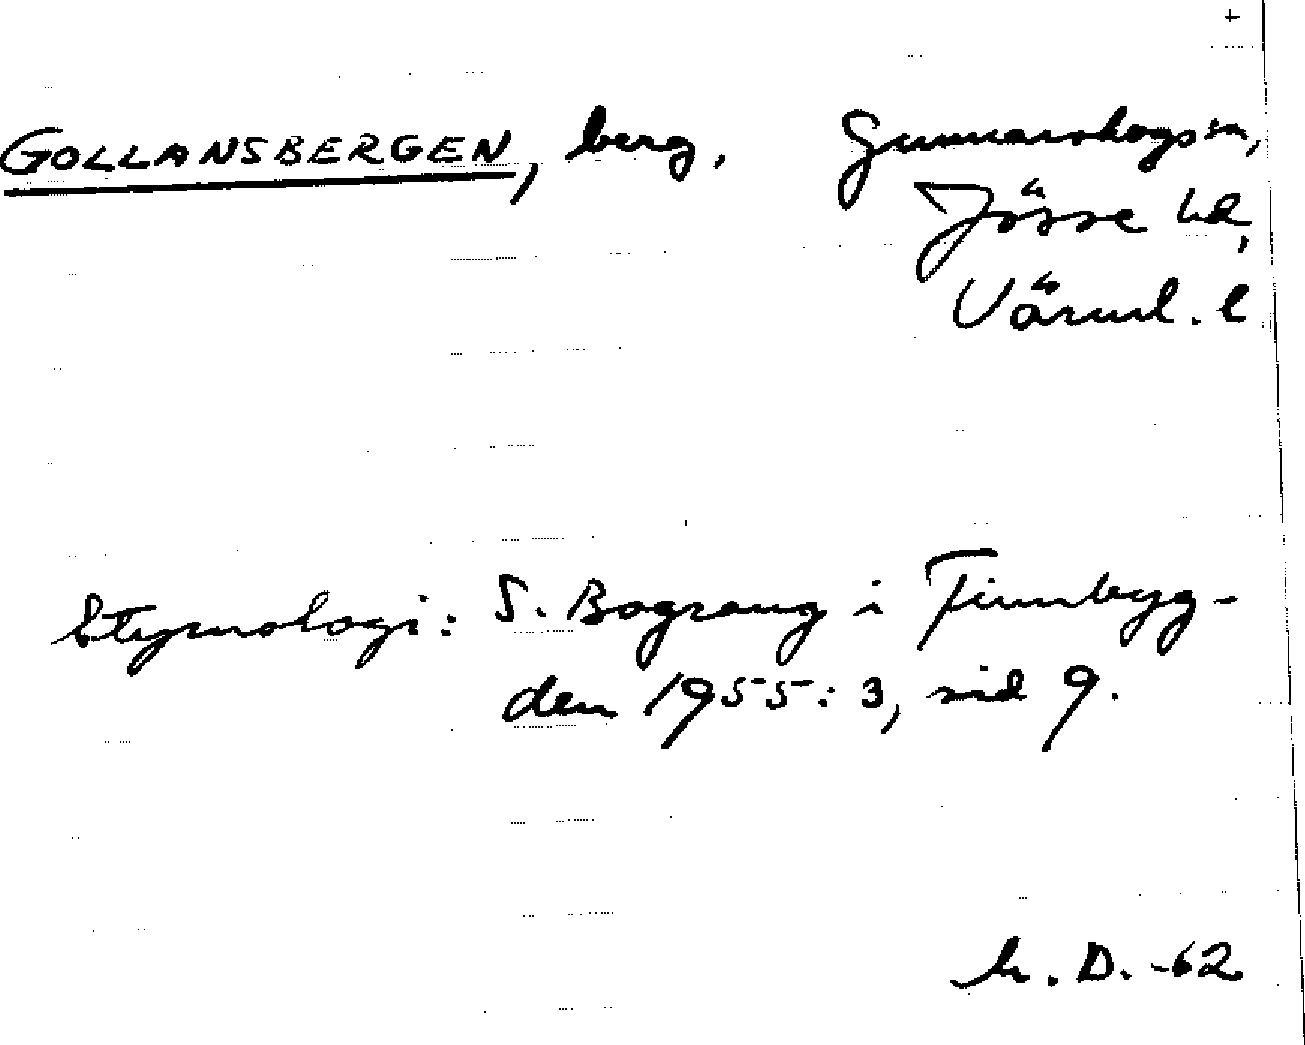 +
GOLLANSBERGEN, berg. Gunnarskogs sn,
Jösse hd,
Värml. l
Etymologi: S. Bograng i Finnbyg-
den 1955:3, sid 9.
D. -62